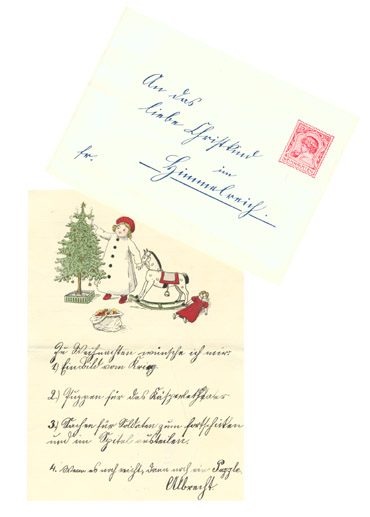 An das
liebe Christkind
im
fr. Himmelreich.
Zu Weihnachten wünsche ich mir:
1) Ein Bild vom Krieg
2.) Puppen für das Kasperltheater
3.) Sachen für Soldaten zum fortschicken
und im Spital austeilen.
4. Wenn es noch reicht, dann noch ein Puzzle.
Albrecht